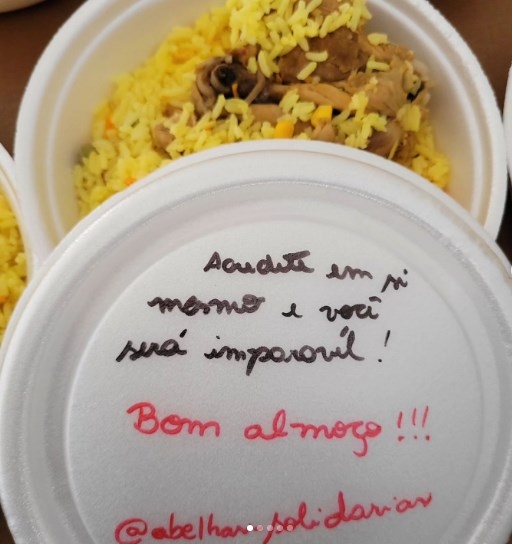 Acredite em si
mesmo e você
será imparavél!
Bom almoço!!!
@abelhas_solidarias